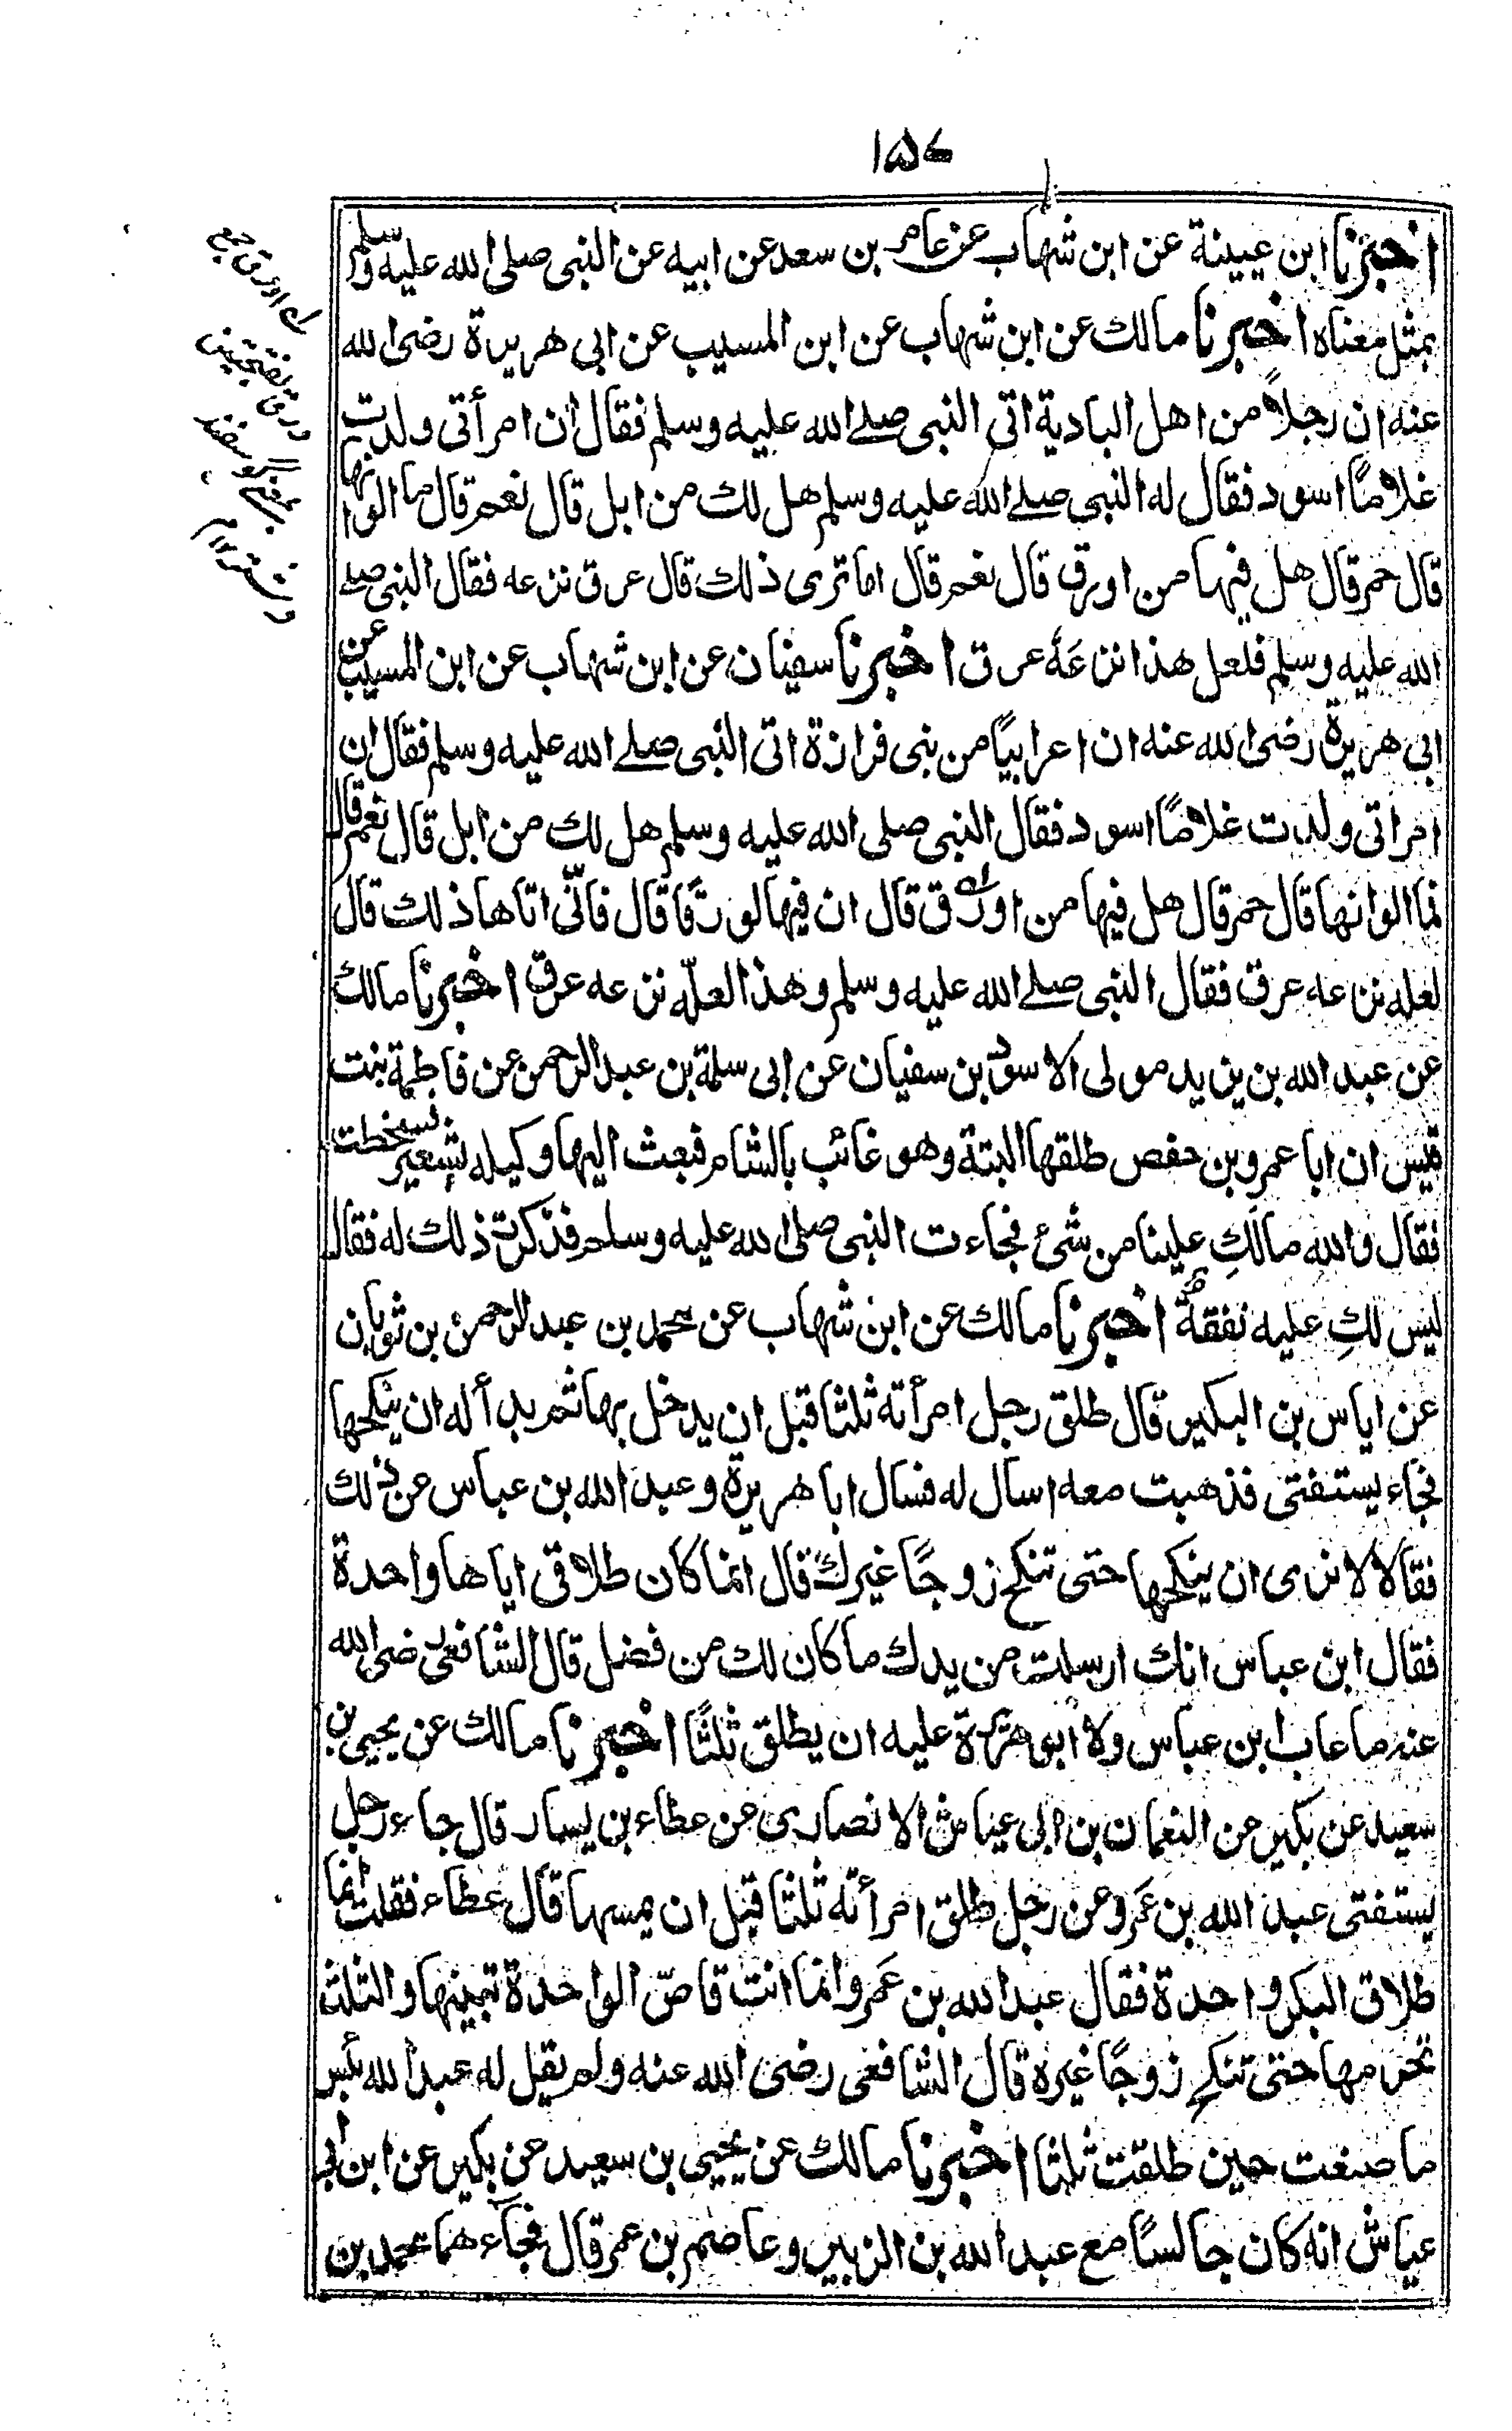 ۱۵۷
اخبرنا ابن عيينة عن ابن شهاب عن عامر بن سعد عن ابيه عن النبى صلى الله عليه وسلم
بمثل معناه اخبرنا مالك عن ابن شهاب عن ابن المسيب عن ابى هريرة رضى الله
عنه ان رجلاً من اهل البادية اتى النبى صلے الله عليه وسلم فقال ان امرأتى ولدت
غلامًا اسود فقال له النبى صلے الله عليه وسلم هل لك من ابل قال نعم قال ما الوانها
قال حمر قال هل فيها من اورق قال نعم قال اما ترى ذلك قال عرق نزعه فقال النبى صلے
الله عليه وسلم فلعل هذا نزعَهٗ عرق اخبرنا سفيان عن ابن شهاب عن ابن المسيب عن
ابى هريرة رضى الله عنه ان اعرابيًا من بنى فزازة اتى النبى صلے الله عليه وسلم فقال ان
امراتى ولدت غلامًا اسود فقال النبى صلى الله عليه وسلم هل لك من ابل قال نعم قال
فما الوانها قال حمر قال هل فيها من اورق قال ان فيها لورقًا قال فانّى اتاها ذلك قال
لعله نزعه عرق فقال النبى صلے الله عليه وسلم وهذا لعلّه نزعه عرق اخبرنا مالك
عن عبد الله بن يزيد مولى الاسود بن سفيان عن ابى سلمة بن عبد الرحمن عن فاطمة بنت
قيس ان ابا عمرو بن حفص طلقها البتة وهو غائب بالشام فبعث اليها وكيله بشعير فسخطت
فقال والله مالَكِ علينا من شئ فجاءت النبى صلى الله عليه وسلم فذكرت ذلك له فقال
ليس لكِ عليه نفقةٌ اخبرنا مالك عن ابن شهاب عن محمد بن عبد الرحمن بن ثوبان
عن اياس بن البكير قال طلق رجل امرأته ثلثا قبل ان يدخل بها ثم بدأ له ان ينكحها
فجاء يستفتى فذهبت معه اسال له فسال ابا هريرة وعبد الله بن عباس عن ذلك
فقالا لا نرى ان ينكحها حتى تنكح زوجًا غيرك قال انما كان طلاقى اياها واحدة
فقال ابن عباس انك ارسلت من يدك ما كان لك من فضل قال الشافعى رضى الله
عنه ما عاب ابن عباس ولا ابو هريرة عليه ان يطلق ثلثًا اخبرنا مالك عن يحيى بن
سعيد عن بكير عن النعمان بن ابى عياش الانصارى عن عطاء بن يسار قال جاء رجل
يستفتى عبد الله بن عَمرو عن رجل طلق امرأته ثلثا قبل ان يمسها قال عطاء فقلت انما
طلاق البكر واحدة فقال عبد الله بن عَمرو انما انت قاصّ الواحدة تبينها والثلث
تحرمها حتى تنكح زوجًا غيره قال الشافعى رضى الله عنه ولم يقل له عبد الله بئس
ما صنعت حين طلقت ثلثا اخبرنا مالك عن يحيى بن سعيد عن بكير عن ابن ابى
عياش انه كان جالسًا مع عبد الله بن الزبير وعاصم بن عمر قال فجآءهما محمد بن